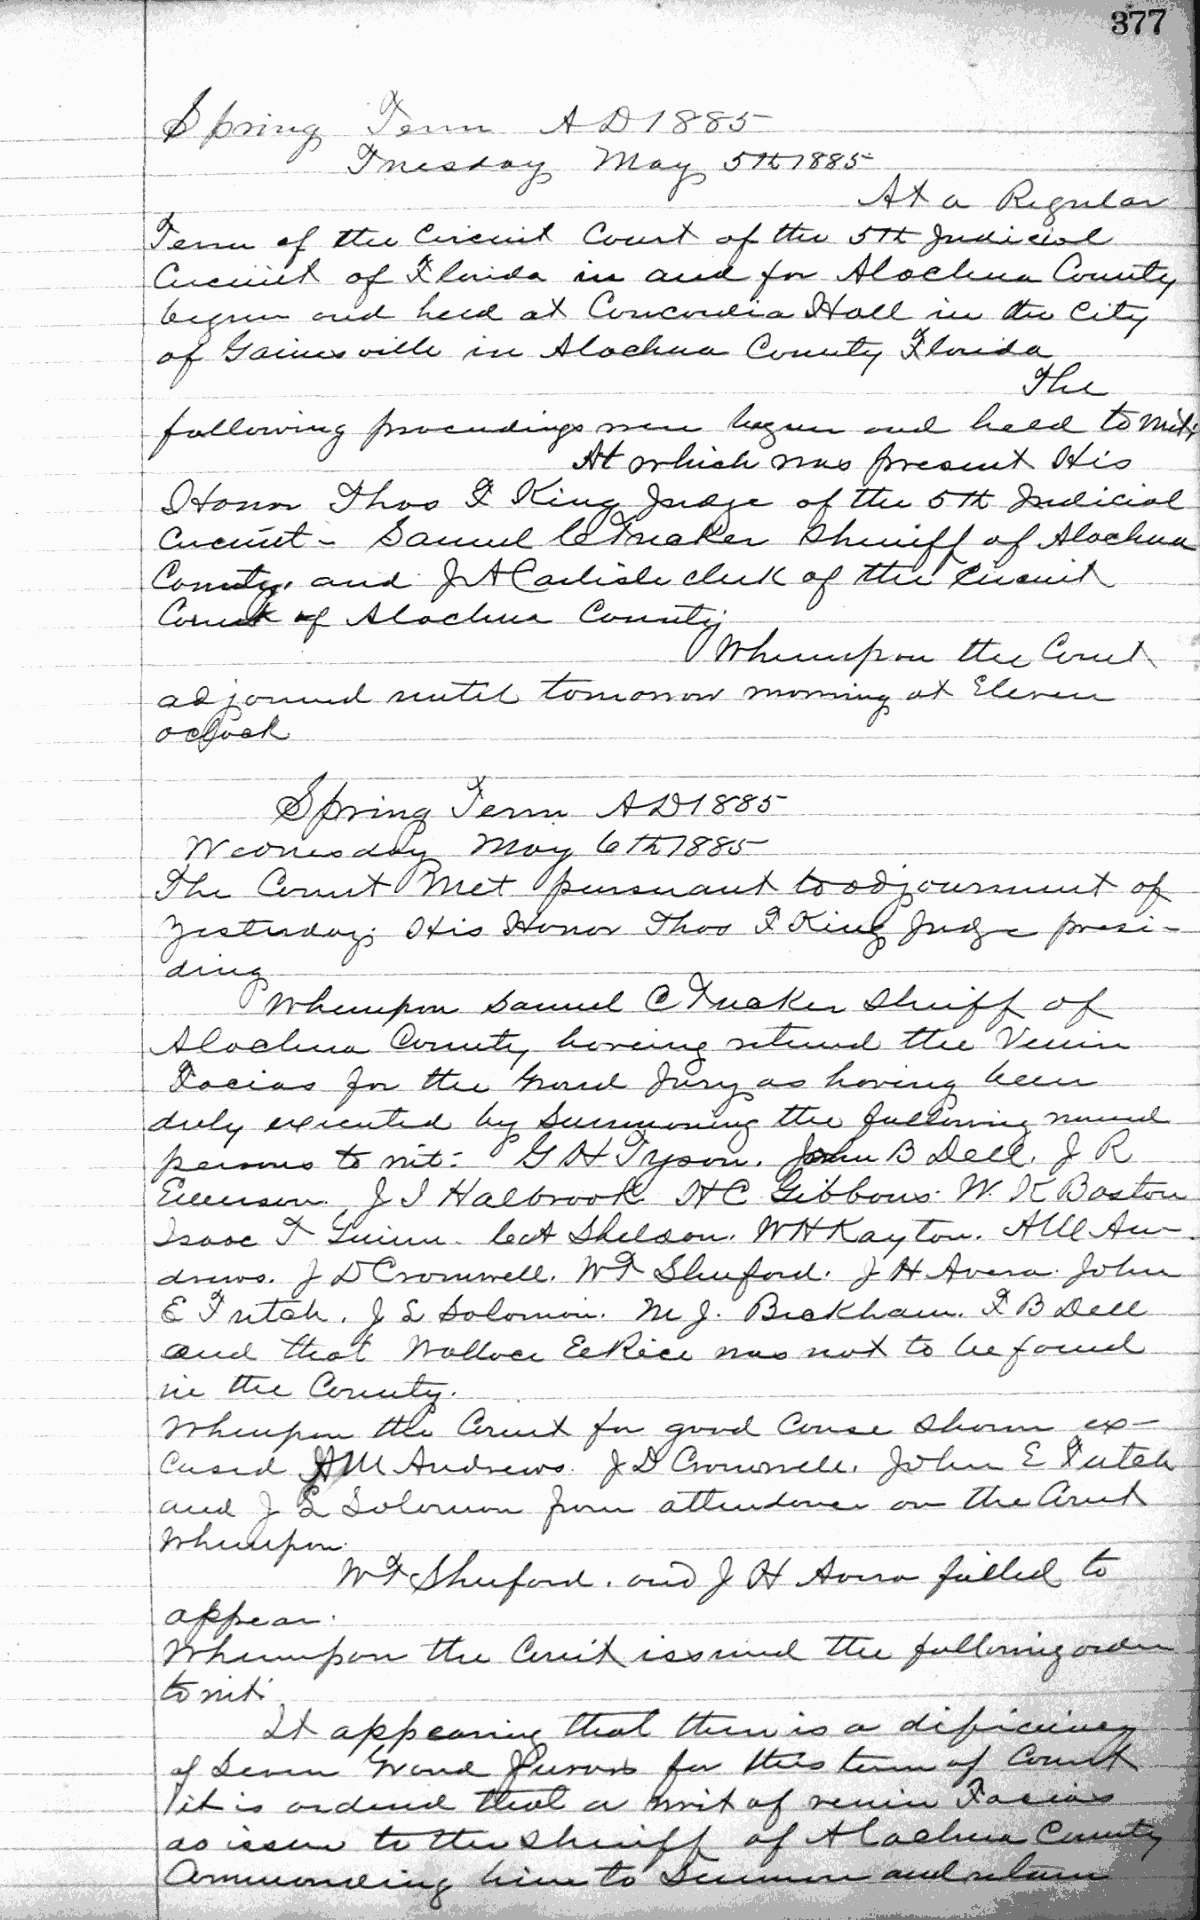 377
Spring Term A D 1885
Tuesday May 5th 1885
At a Regular
Term of the Circuit Court of the 5th Judicial
Circuit of Florida in and for Alachua County
begun and held at Concordia Hall in the City
of Gainesville in Alachua County Florida
The
following proceedings were begun and held to wit;
At which was present His
Honor Thos F King Judge of the 5th Judicial
Circuit - Samuel C Tucker Sheriff of Alachua
County, and J A Carlisle clerk of the Circuit
Court of Alachua County
Whereupon the Court
adjourned until tomorrow morning at Eleven
oclock
Spring Term A D 1885
Wednesday May 6th 1885
The Court Met pursuant to adjournment of
Yesterday. His Honor Thos F King Judge presi-
ding
Whereupon Samuel C Tucker Sheriff of
Alachua County having returned the Venire
Facias for the Grand Jury as having been
duly executed by Summoning the following named
persons to wit: G H Tyson. John B Dell. J R
Emerson. J I Halbrook. H C Gibbons. W. K Boston
Isaac T Guinn. C A Sheldon. W H Kayton. A M An-
drews. J D Cromwell. W F Shuford. J H Avera. John
E Futch. J E Solomon. M J. Beckham. F B Dell
and that Wallace E Rice was not to be found
in the County.
Whereupon the Court for good Cause shown ex-
cused A M Andrews. J D Cromwell. John E Futch
and J E Solomon from attendance on the Court
Whereupon.
W F Shuford. and J H Avera failed to
appear.
Whereupon the Court issued the following order
to wit:
It appearing that there is a dificiency
of Seven Grand Jurors for this term of Court
it is ordered that a writ of venire Facias
do issue to the Sheriff of Alachua County
Commanding him to Summon and return